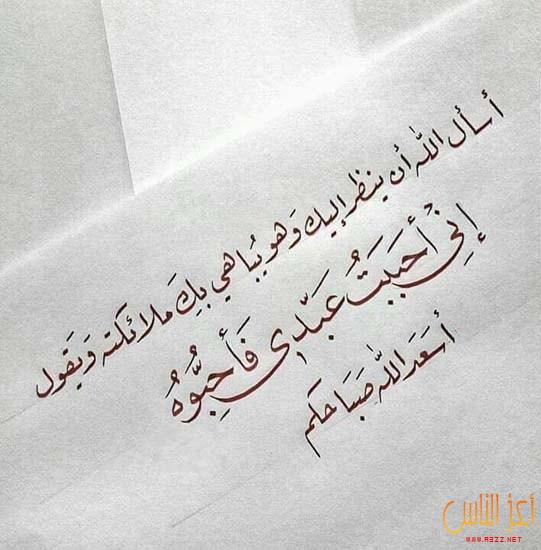 أسأل الله أن ينظر إليك وهو يُباهي بِكَ ملائكته وَيَقول
إنِّي أحبَبَتُ عَبدِي فَأحِبُّوهُ
أسعَدَ الله صَبَاحكم
أعز الناس
WWW.A3ZZ.NET